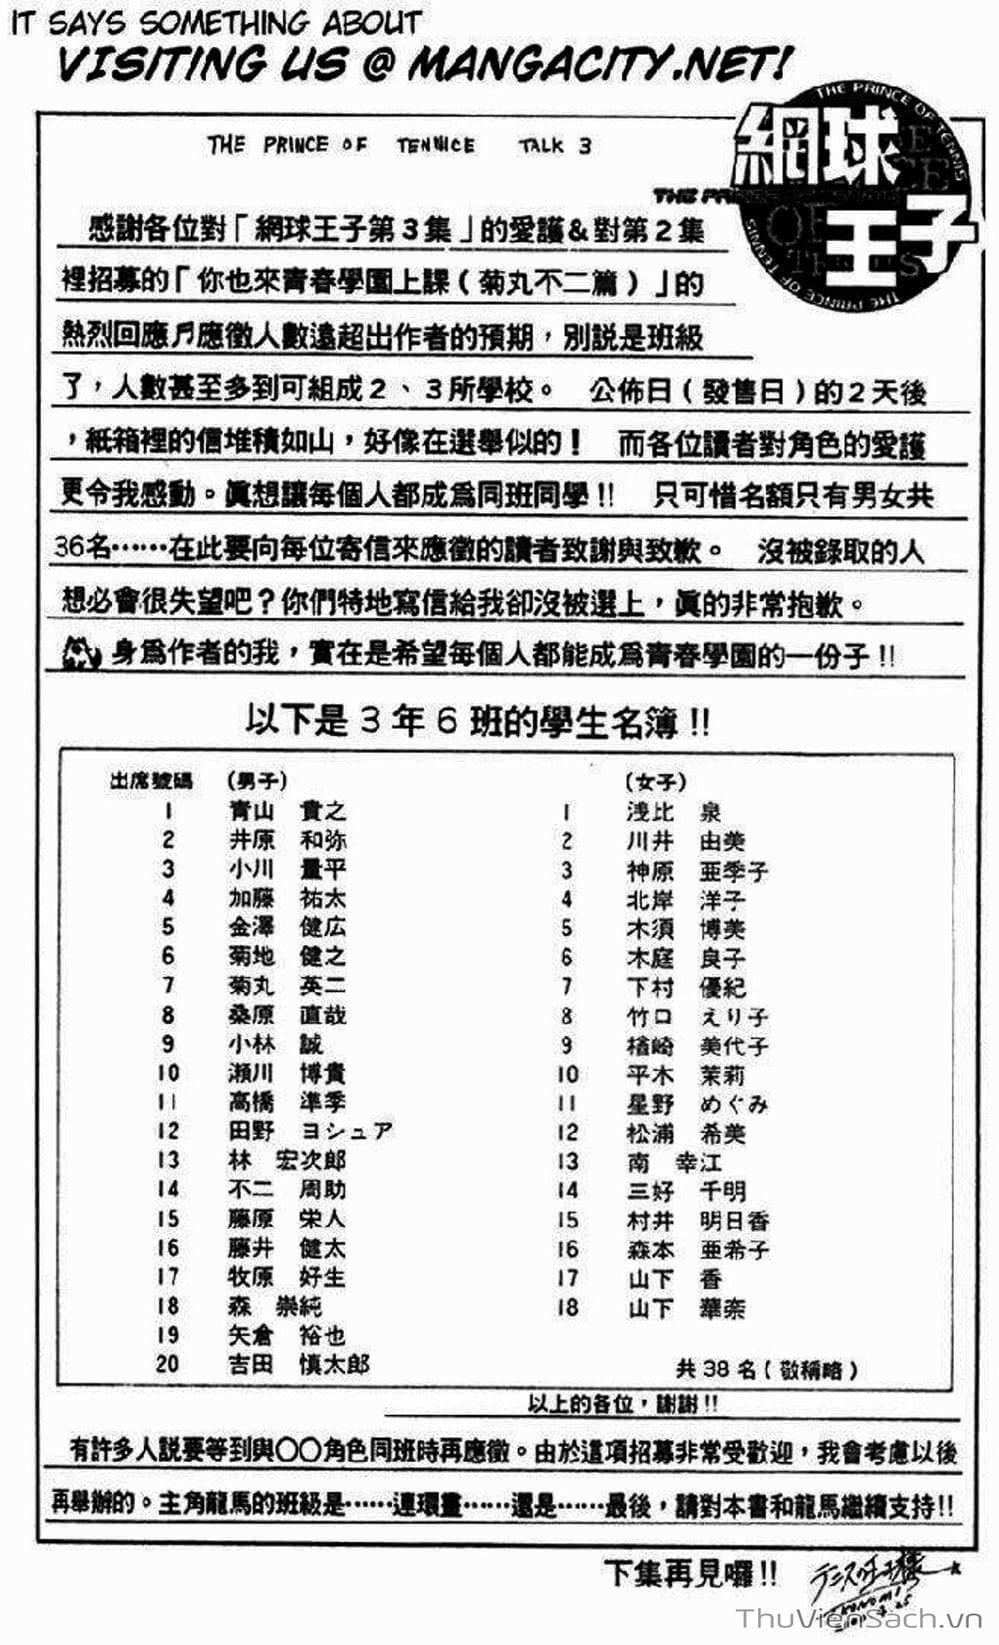 IT SAYS SOMETHING ABOUT
VISITING US @ MANGACITY.NET!
THE PRINCE OF TENNIS
網球
王子
THE PRINCE OF TENNICE TALK 3
感謝各位對「網球王子第3集」的愛護&對第2集
裡招募的「你也來青春學園上課(菊丸不二篇)」的
熱烈回應♬應徵人數遠超出作者的預期,別説是班級
了,人數甚至多到可組成2、3所學校。 公佈日(發售日)的2天後
,紙箱裡的信堆積如山,好像在選舉似的! 而各位讀者對角色的愛護
更令我感動。眞想讓每個人都成爲同班同學!! 只可惜名額只有男女共
36名……在此要向每位寄信來應徵的讀者致謝與致歉。 沒被錄取的人
想必會很失望吧?你們特地寫信給我卻沒被選上,眞的非常抱歉。
身爲作者的我,實在是希望每個人都能成爲青春學園的一份子!!
以下是3年6班的學生名簿!!
出席號碼 (男子) (女子)
1 青山 貴之 1 浅比 泉
2 井原 和弥 2 川井 由美
3 小川 量平 3 神原 亜季子
4 加藤 祐太 4 北岸 洋子
5 金澤 健広 5 木須 博美
6 菊地 健之 6 木庭 良子
7 菊丸 英二 7 下村 優紀
8 桑原 直哉 8 竹口 えり子
9 小林 誠 9 楢崎 美代子
10 瀬川 博貴 10 平木 茉莉
11 高橋 準季 11 星野 めぐみ
12 田野 ヨシュア 12 松浦 希美
13 林 宏次郎 13 南 幸江
14 不二 周助 14 三好 千明
15 藤原 栄人 15 村井 明日香
16 藤井 健太 16 森本 亜希子
17 牧原 好生 17 山下 香
18 森 崇純 18 山下 華奈
19 矢倉 裕也
20 吉田 慎太郎
共38名(敬稱略)
以上的各位,謝謝!!
有許多人説要等到與〇〇角色同班時再應徵。由於這項招募非常受歡迎,我會考慮以後
再舉辦的。主角龍馬的班級是……連環畫……還是……最後,請對本書和龍馬繼續支持!!
下集再見囉!!
テニスの王子様
KONOMI
ThuVienSach.vn